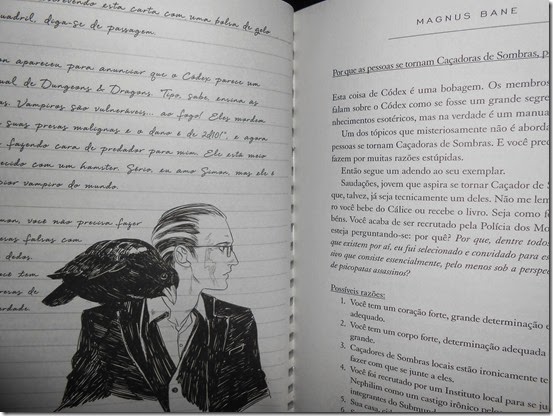 crevendo esta carta com uma bolsa de gelo
uadril, diga-se de passagem.
on apareceu para anunciar que o Códex parece um
ual de Dungeons & Dragons. Tipo, sabe, ensina as
as. Vampiros são vulneráveis... ao fogo! Eles mordem
suas presas malignas e o dano é de 2d10!", e agora
fazendo cara de predador para mim. Ele está meio
ecido com um hamster. Sério, eu amo Simon, mas ele é
pior vampiro do mundo.
mon, você não precisa fazer
esas falsas com
dedos.
cê tem
esas de
erdade.
MAGNUS BANE
Por que as pessoas se tornam Caçadoras de Sombras, p
Esta coisa de Códex é uma bobagem. Os membros
falam sobre o Códex como se fosse um grande segre
nhecimentos esotéricos, mas na verdade é um manual
Um dos tópicos que misteriosamente não é aborda
pessoas se tornam Caçadoras de Sombras. E você preci
fazem por muitas razões estúpidas.
Então segue um adendo ao seu exemplar.
Saudações, jovem que aspira se tornar Caçador de S
que, talvez, já seja tecnicamente um deles. Não me lem
ro você bebe do Cálice ou recebe o livro. Seja como f
béns. Você acaba de ser recrutado pela Polícia dos Mo
esteja perguntando-se: por quê? Por que, dentre todos
que existem por aí, eu fui selecionado e convidado para es
tivo que consiste essencialmente, pelo menos sob a perspe
de psicopatas assassinos?
Possíveis razões:
1. Você tem um coração forte, grande determinação e
adequado.
2. Você tem um corpo forte, determinação adequada
grande.
3. Caçadores de Sombras locais estão ironicamente te
fazer com que se junte a eles.
4. Você foi recrutado por um Instituto local para se ju
Nephilim como um castigo irônico pelos
integrantes do Submundo
5. Sua casa, vi